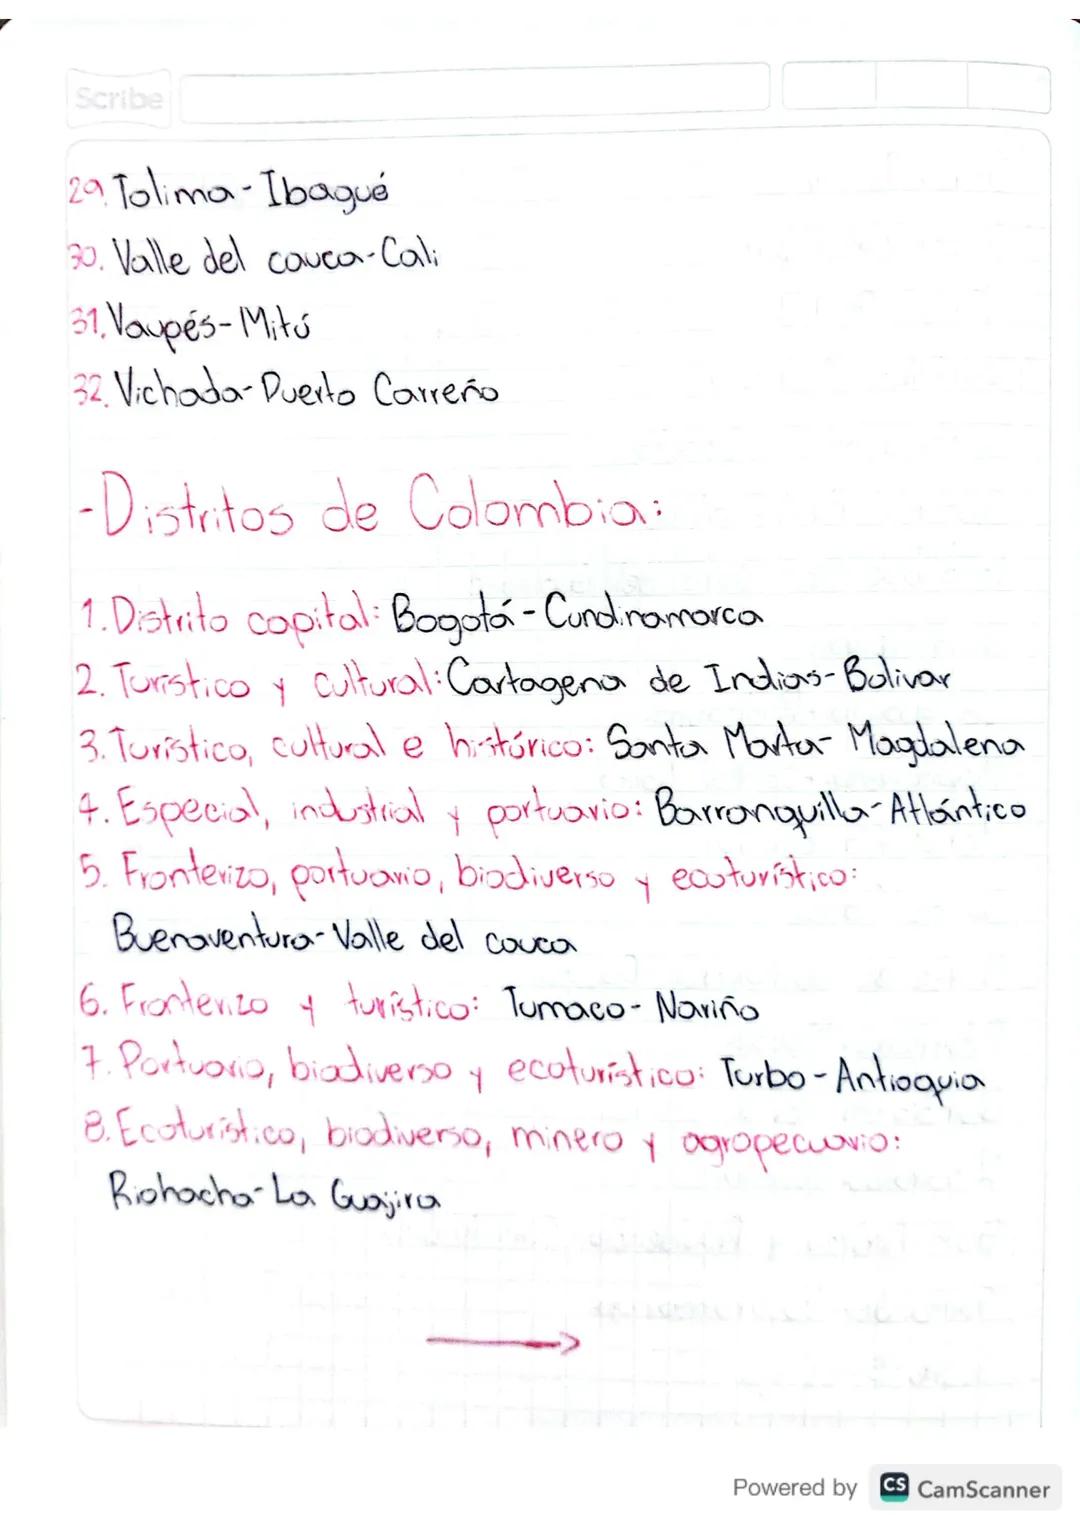 Scribe
29. Tolima - Ibagué
30. Valle del cauca - Cali
31. Vaupés - Mitú
32. Vichada - Puerto Carreño
- Distritos de Colombia:
1. Distrito capital: Bogotá - Cundinamarca
2. Turístico y cultural: Cartagena de Indias - Bolivar
3. Turístico, cultural e histórico: Santa Marta - Magdalena
4. Especial, industrial y portuario: Barranquilla - Atlántico
5. Fronterizo, portuario, biodiverso y ecoturístico:
Buenaventura - Valle del cauca
6. Fronterizo y turístico: Tumaco - Nariño
7. Portuario, biodiverso y ecoturístico: Turbo - Antioquia
8. Ecoturístico, biodiverso, minero y agropecuario:
Riohacha - La Guajira
Powered by CS CamScanner